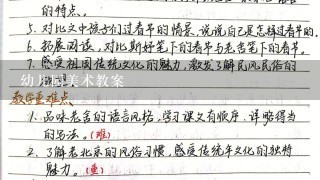 的特点。
5. 对比文中孩子们过春节的情景，说说自己是怎样过春节的。
6. 拓展阅读，对比斯好笔下的春节与老舍笔下的春节。
7. 感受祖国传统文化的魅力，激发了解民风民俗的
幼儿园美术教案
教学重难点
1. 品味老舍的语言风格，学习课文有顺序、详略得当
的写法。（难）
2. 了解老北京的风俗习惯，感受传统年文化的独特
魅力。（重）